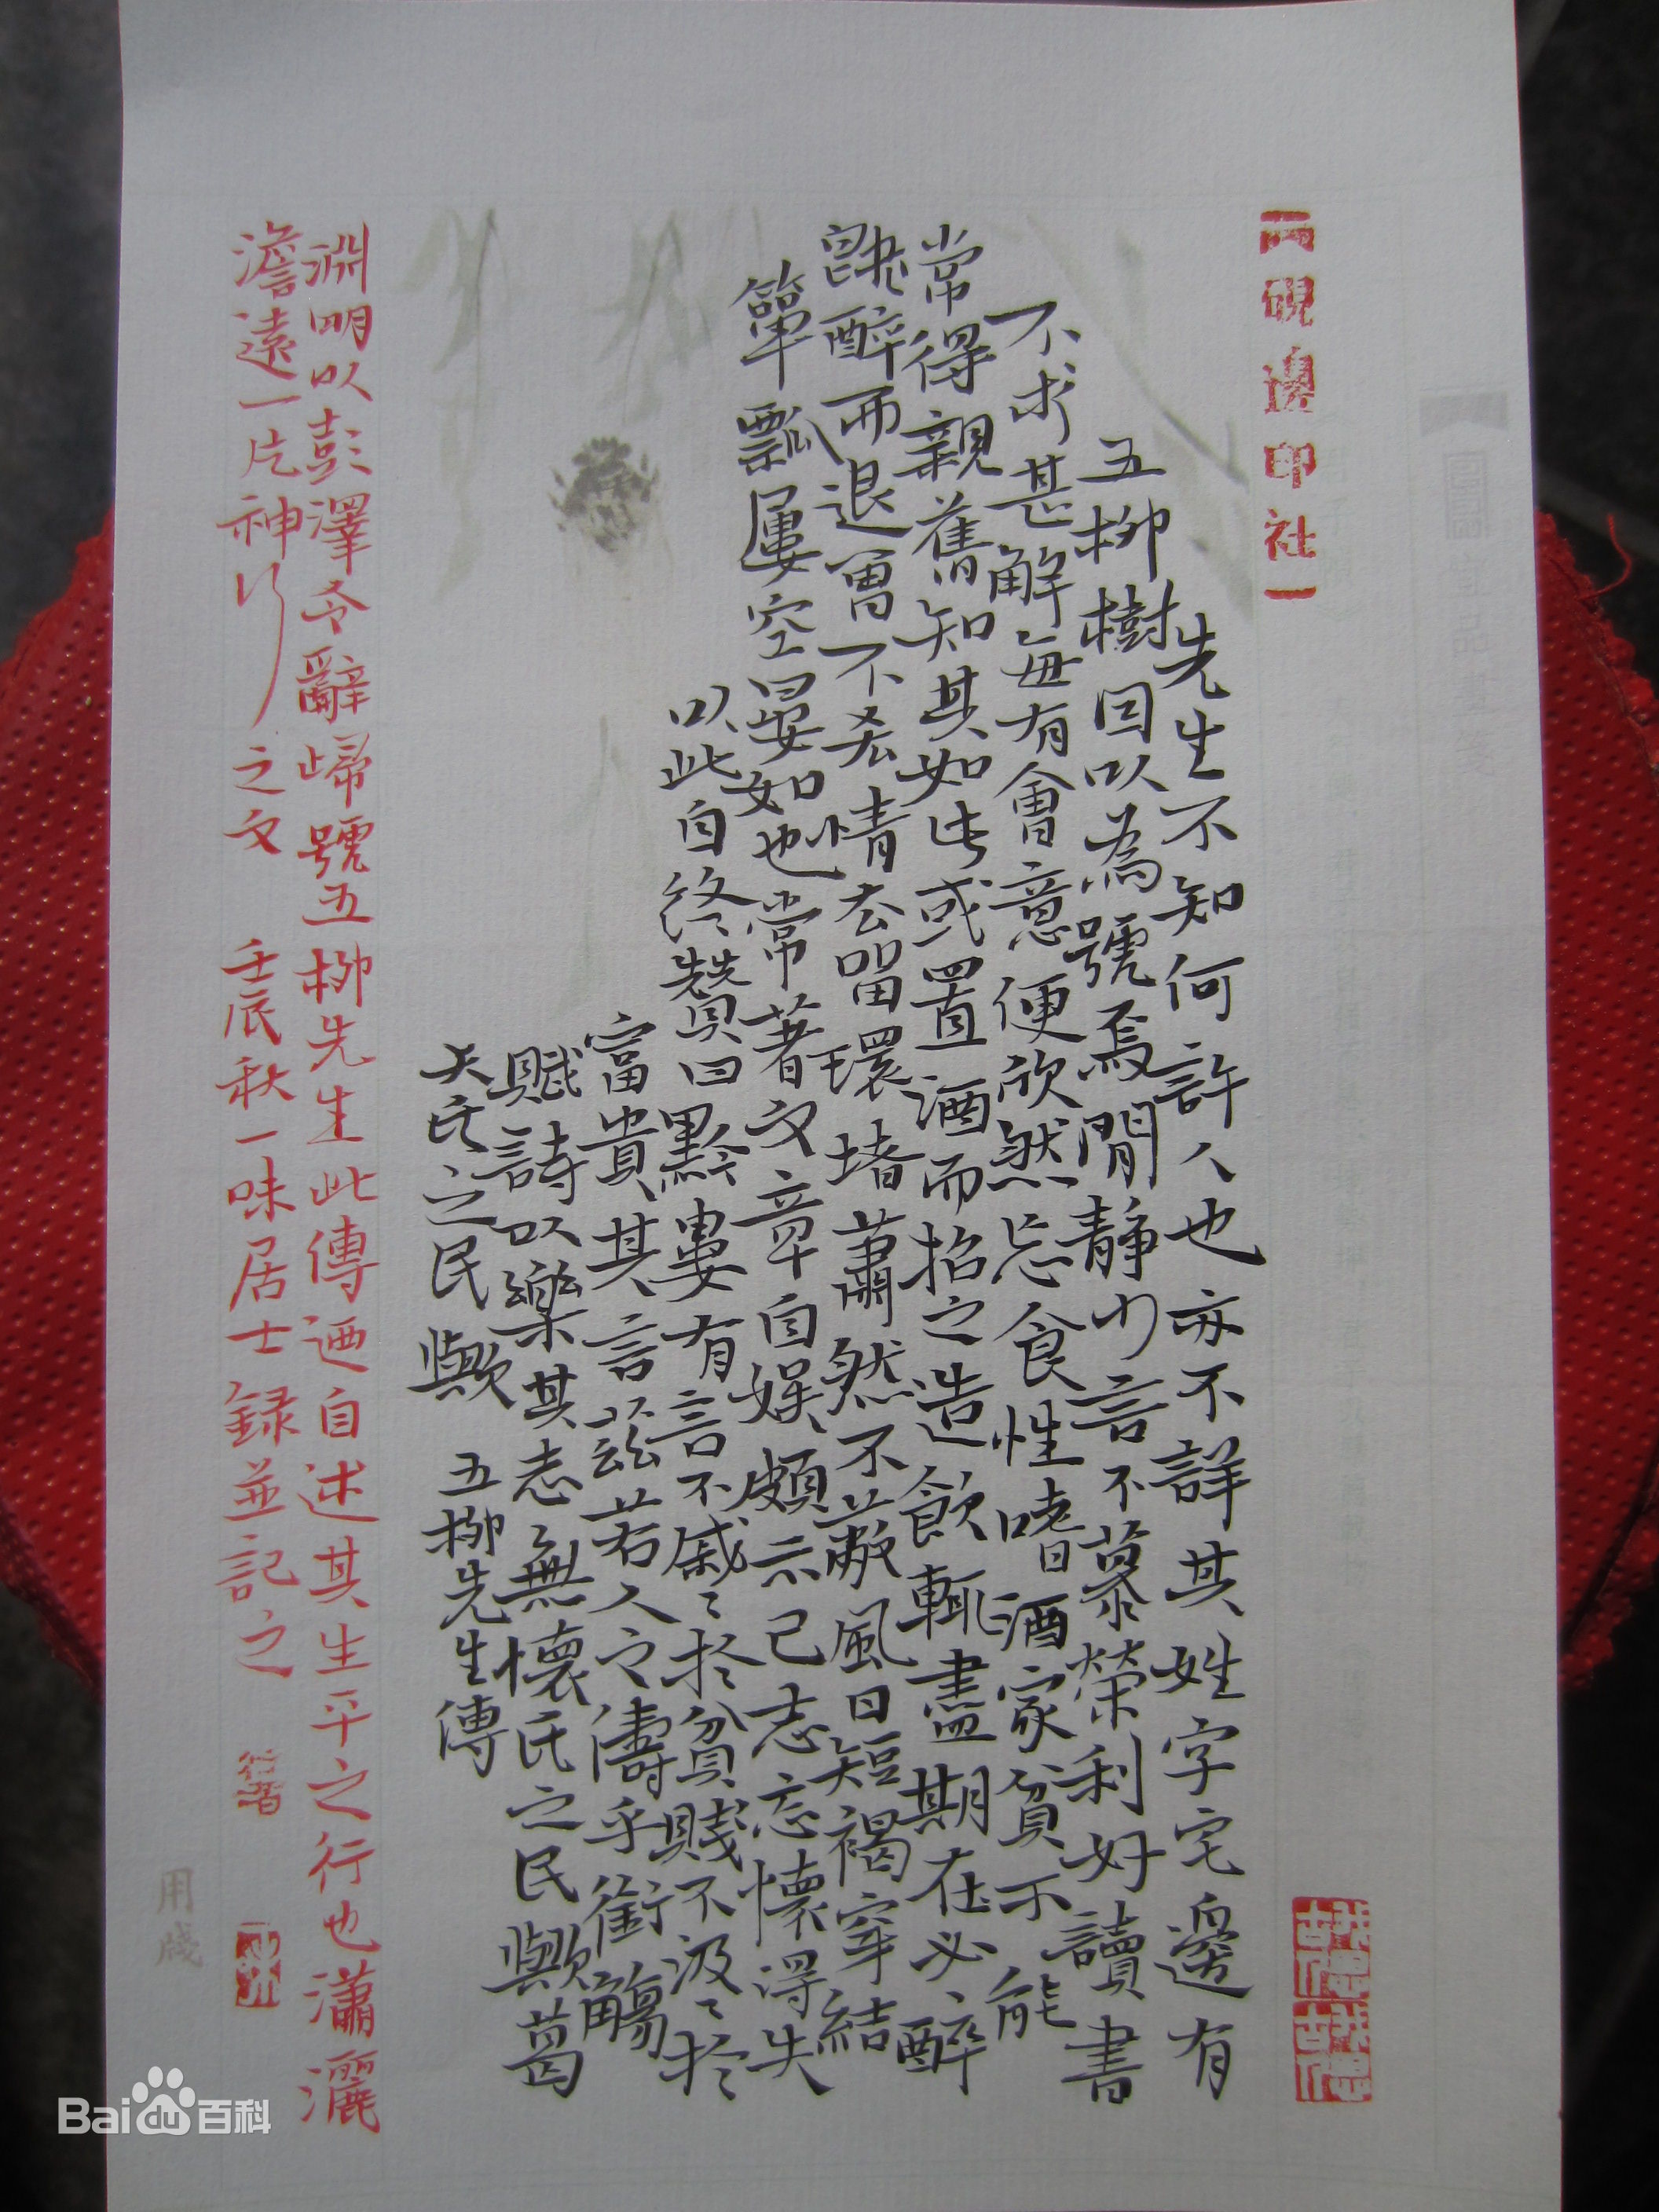 硯邊印社
先生不知何許人也亦不詳其姓字宅邊有
五柳樹因以為號焉閒靜少言不慕榮利好讀書
不求甚解每有會意便欣然忘食性嗜酒家貧不能
常得親舊知其如此或置酒而招之造飲輒盡期在必醉
既醉而退曾不吝情去留環堵蕭然不蔽風日短褐穿結
簞瓢屢空晏如也常著文章自娛頗示己志忘懷得失
以此自終贊曰黔婁有言不戚〻於貧賤不汲〻於
富貴其言茲若人之儔乎銜觴
賦詩以樂其志無懷氏之民歟葛
天氏之民歟 五柳先生傳
淵明以彭澤令辭歸號五柳先生此傳迺自述其生平之行也瀟灑
澹遠一片神行之文 壬辰秋一味居士録並記之
用牋
Baidu百科